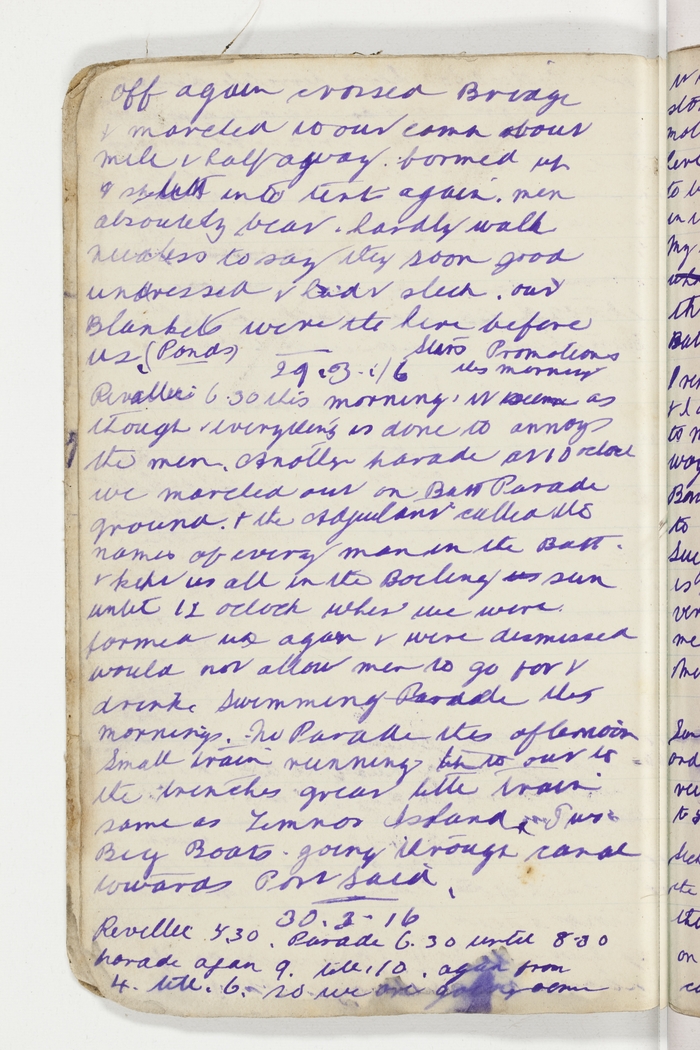 off again crossed Bridge
& marched to our camp about
mile & half agway. formed up
& into tent again. men
absoutely beat. hardly walk
needless to say they soon good
undressed & sleep. our
Blankets were the here before
us. (Ponds)
29.3.16
Promotions
this morning
Revallee 6.30 this morning, it seems as
though everything is done to annoy
the men. Another parade at 10 oclock
we marched out on Batt Parade
ground. & the Adjutant called the
names of every man in the Batt.
& kept us all in the Boeling sun
until 12 oclock when we were
formed up again & were dismissed
would not allow men to go for &
drink. Swimming Parade this
morning. No Parade this afternoon
Small train running out to
the trenches great little train
same as Lemnos Island. Two
Big Boats going through canal
towards Port Said.
30.3-16
Revellee 5.30. Parade 6.30 until 8-30
parade agan 9. till 10. again from
4. till. 6. 20 we are going